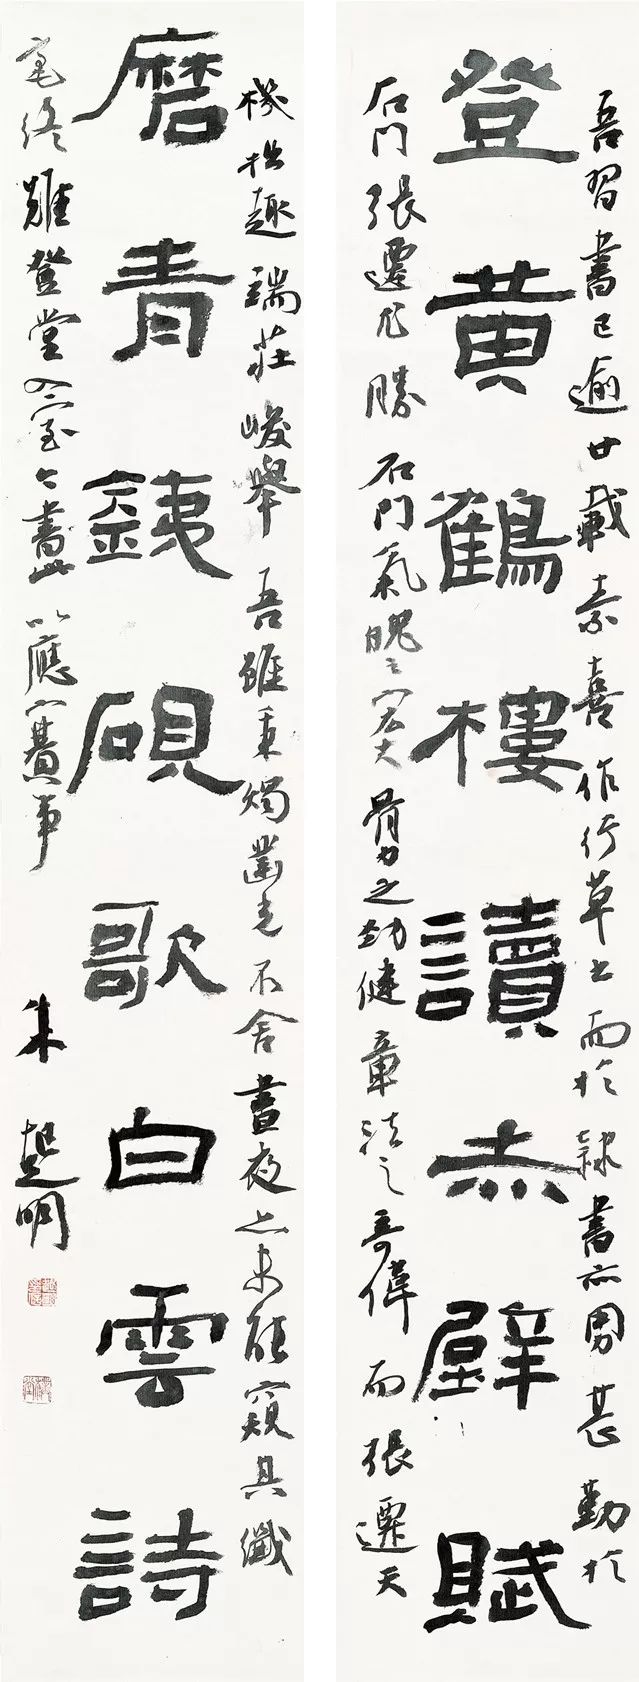 吾習書已逾廿載素喜作行草書而於隸書亦用力甚勤於
登黄鶴樓讀赤壁賦
石門張遷尤勝石門氣魄之宏大骨力之勁健章法之奇偉而張遷天
機拙趣端莊峻舉吾雖秉燭鑿光不舍晝夜未能窺其纖
磨青銕硯歌白雲詩
毫終難登堂入室今書此以應賽事
朱超明